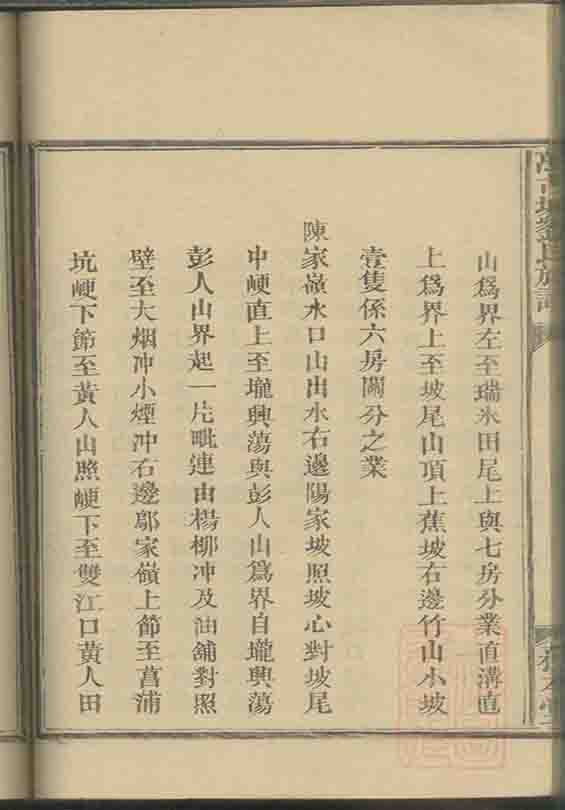 山爲界左至瑞氷田尾上與七房分業直溝直
上爲界上至坡尾山頂上蕉坡右邊竹山小坡
壹隻係六房鬮分之業
陳家嶺水口山出水右邊陽家坡照坡心對坡尾
中崾直上至壠興蕩與彭人山爲界自壠興蕩
彭人山界起一片毗連由楊柳冲及油舖對照
壁至大烟冲小煙冲右邊鄔家嶺上節至菖浦
坑崾下節至黃人山照崾下至雙江口黃人田